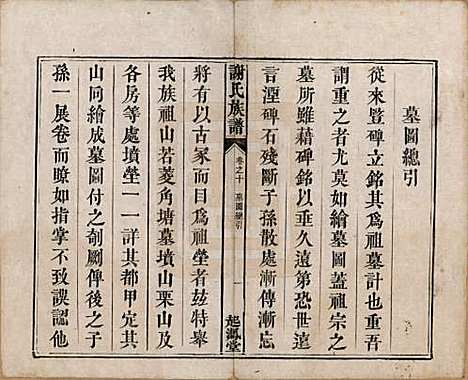 墓圖總引
從來豎碑立銘其爲祖墓計也重吾
謂重之者尤莫如繪墓圖蓋祖宗之
墓所雖藉碑銘以垂久遠第恐世遠
言湮碑石殘斷子孫散處漸傳漸忘
謝氏族譜
卷之十
墓圖總引
一
起鳳堂
將有以古冢而目爲祖塋者玆特舉
我族祖山若菱角塘墓墳山栗山及
各房等處墳塋一一詳其都甲定其
山向繪成墓圖付之剞劂俾後之子
孫一展卷而瞭如指掌不致誤認他